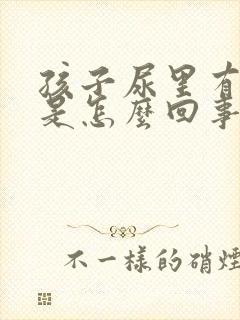 孩子尿里有
是怎麼回事
不一樣的硝煙